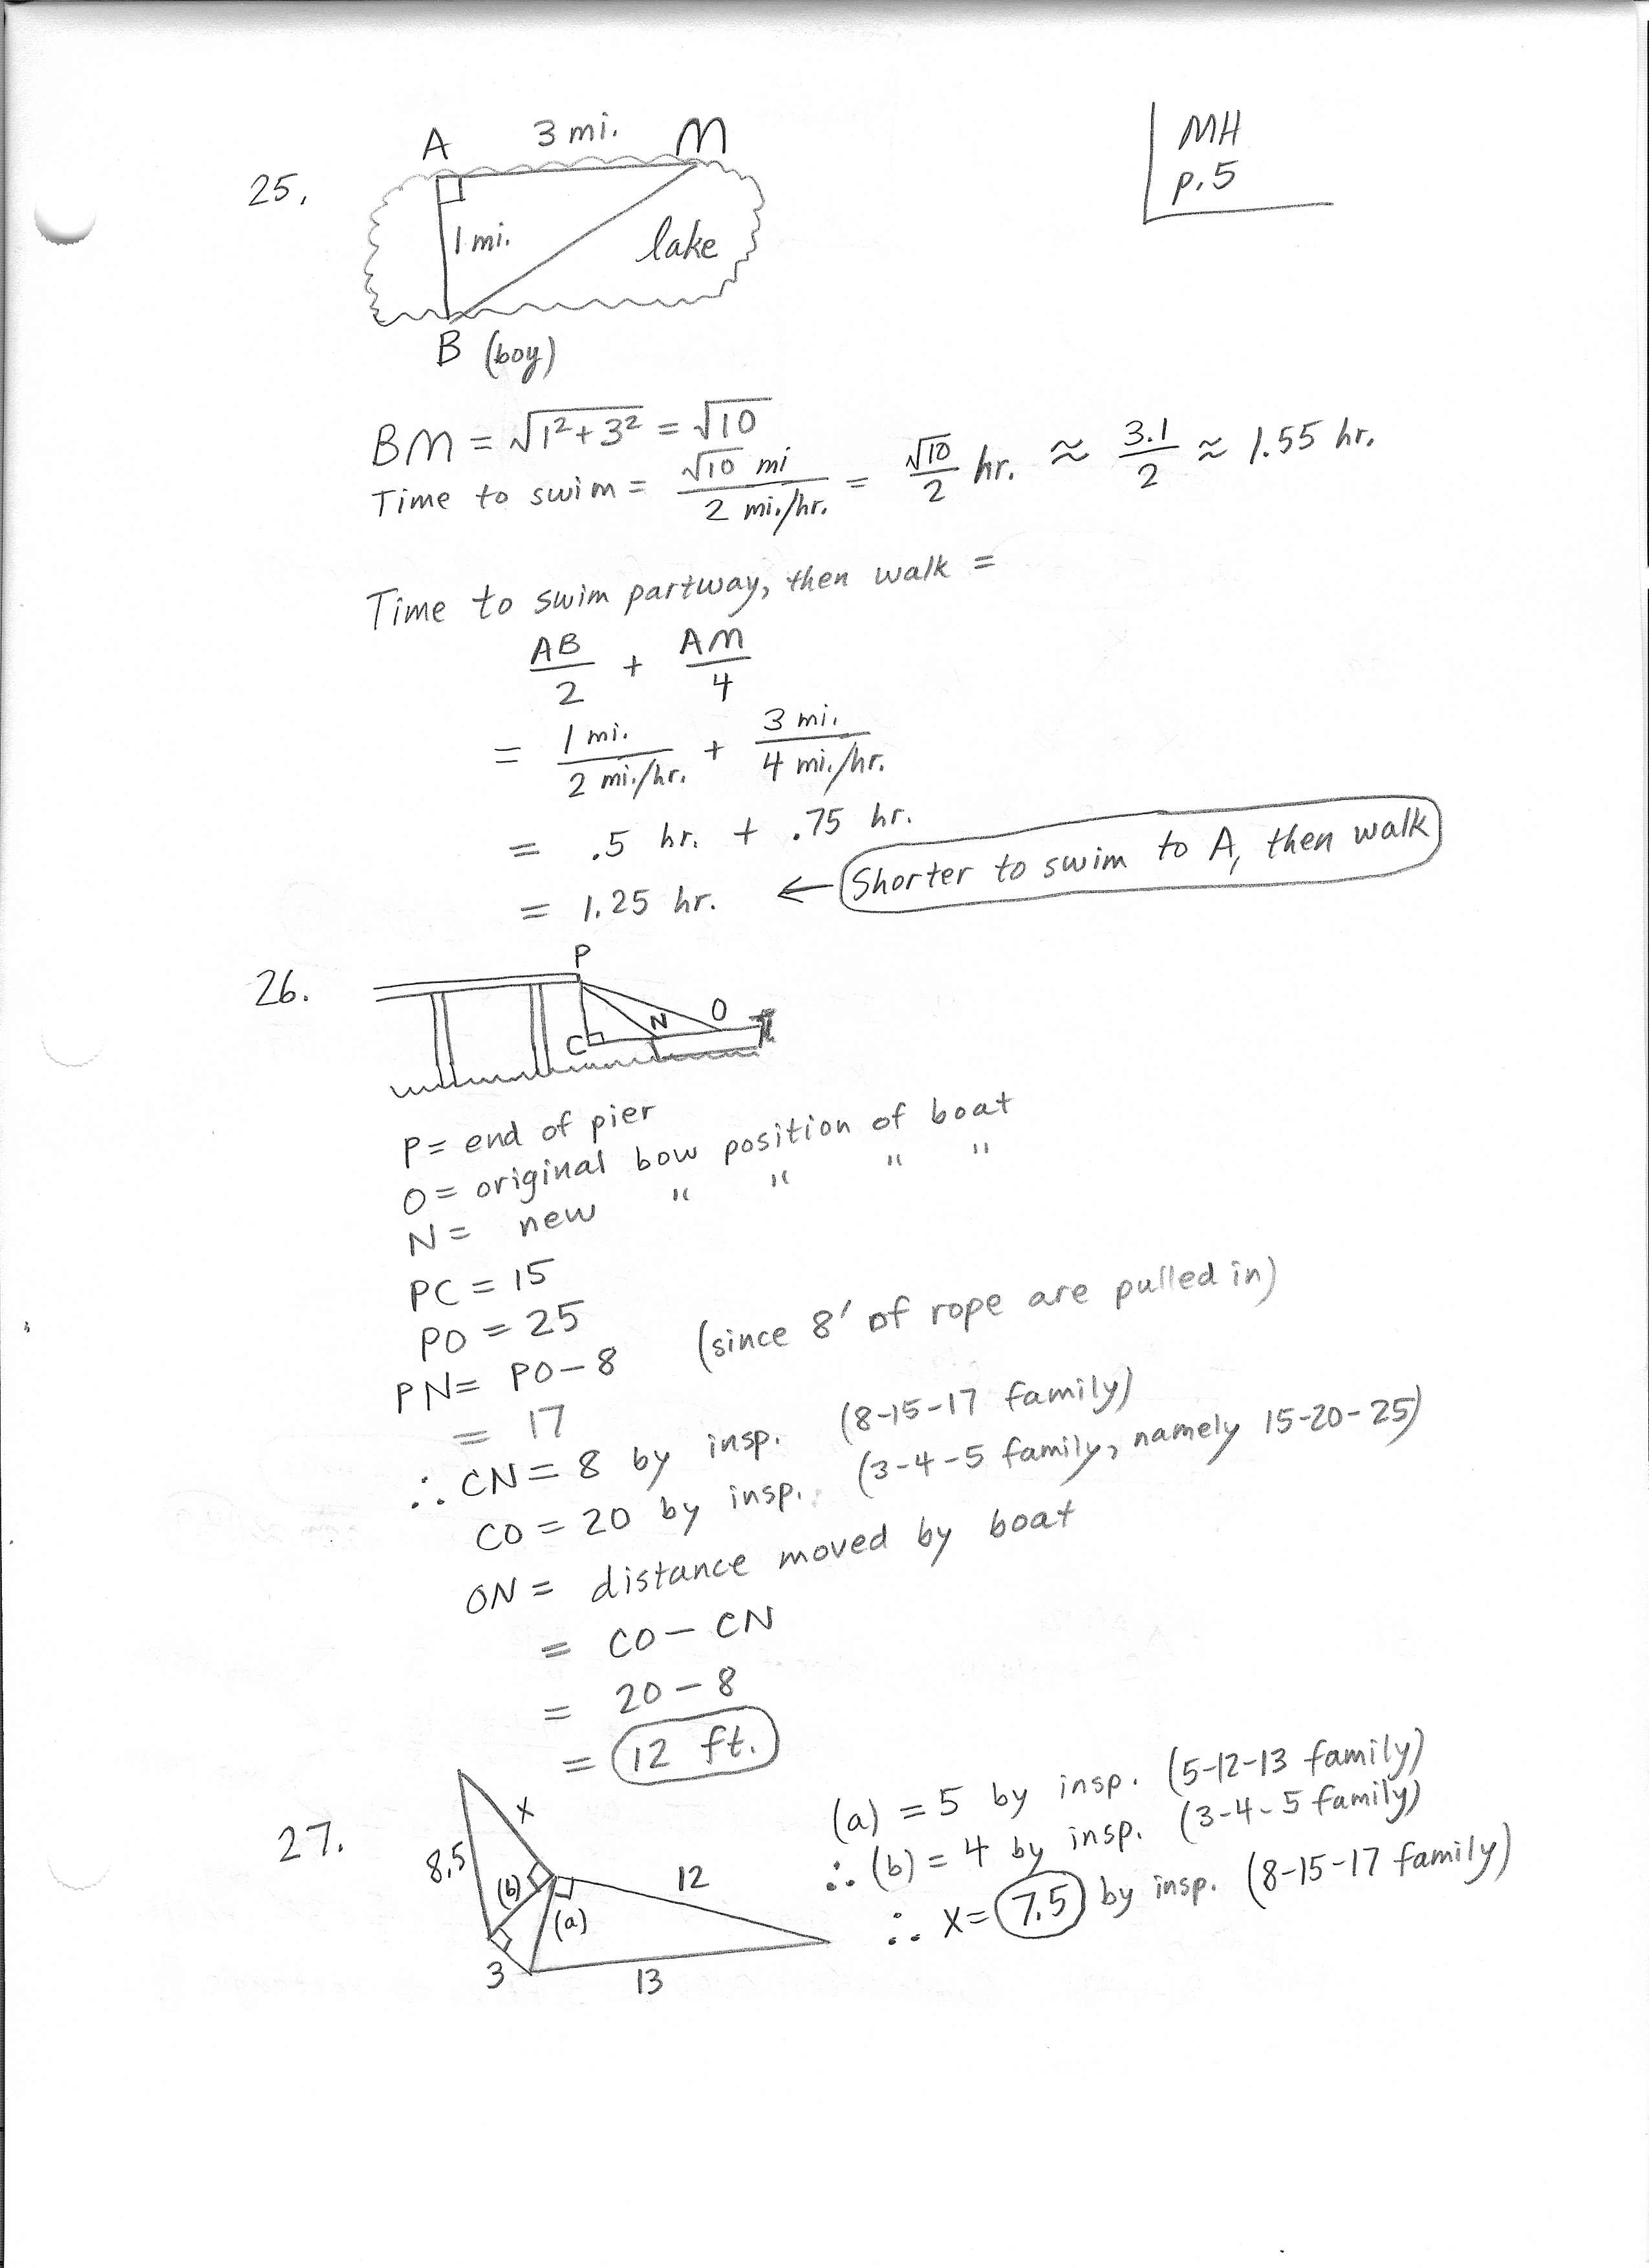 MH
p.5
25.
A 3 mi. M
1 mi.
lake
B (boy)
BM = √1²+3² = √10
Time to swim = √10 mi / 2 mi./hr. = √10/2 hr. ≈ 3.1/2 ≈ 1.55 hr.
Time to swim partway, then walk =
AB/2 + AM/4
= 1 mi. / 2 mi./hr. + 3 mi. / 4 mi./hr.
= .5 hr. + .75 hr.
= 1.25 hr. ← Shorter to swim to A, then walk
26.
P
C N O
P = end of pier
O = original bow position of boat
N = new " " " "
PC = 15
PO = 25
PN = PO - 8 (since 8' of rope are pulled in)
= 17
∴ CN = 8 by insp. (8-15-17 family)
CO = 20 by insp. (3-4-5 family, namely 15-20-25)
ON = distance moved by boat
= CO - CN
= 20 - 8
= 12 ft.
27.
x
8.5
(b)
(a)
12
3
13
(a) = 5 by insp. (5-12-13 family)
∴ (b) = 4 by insp. (3-4-5 family)
∴ x = 7.5 by insp. (8-15-17 family)